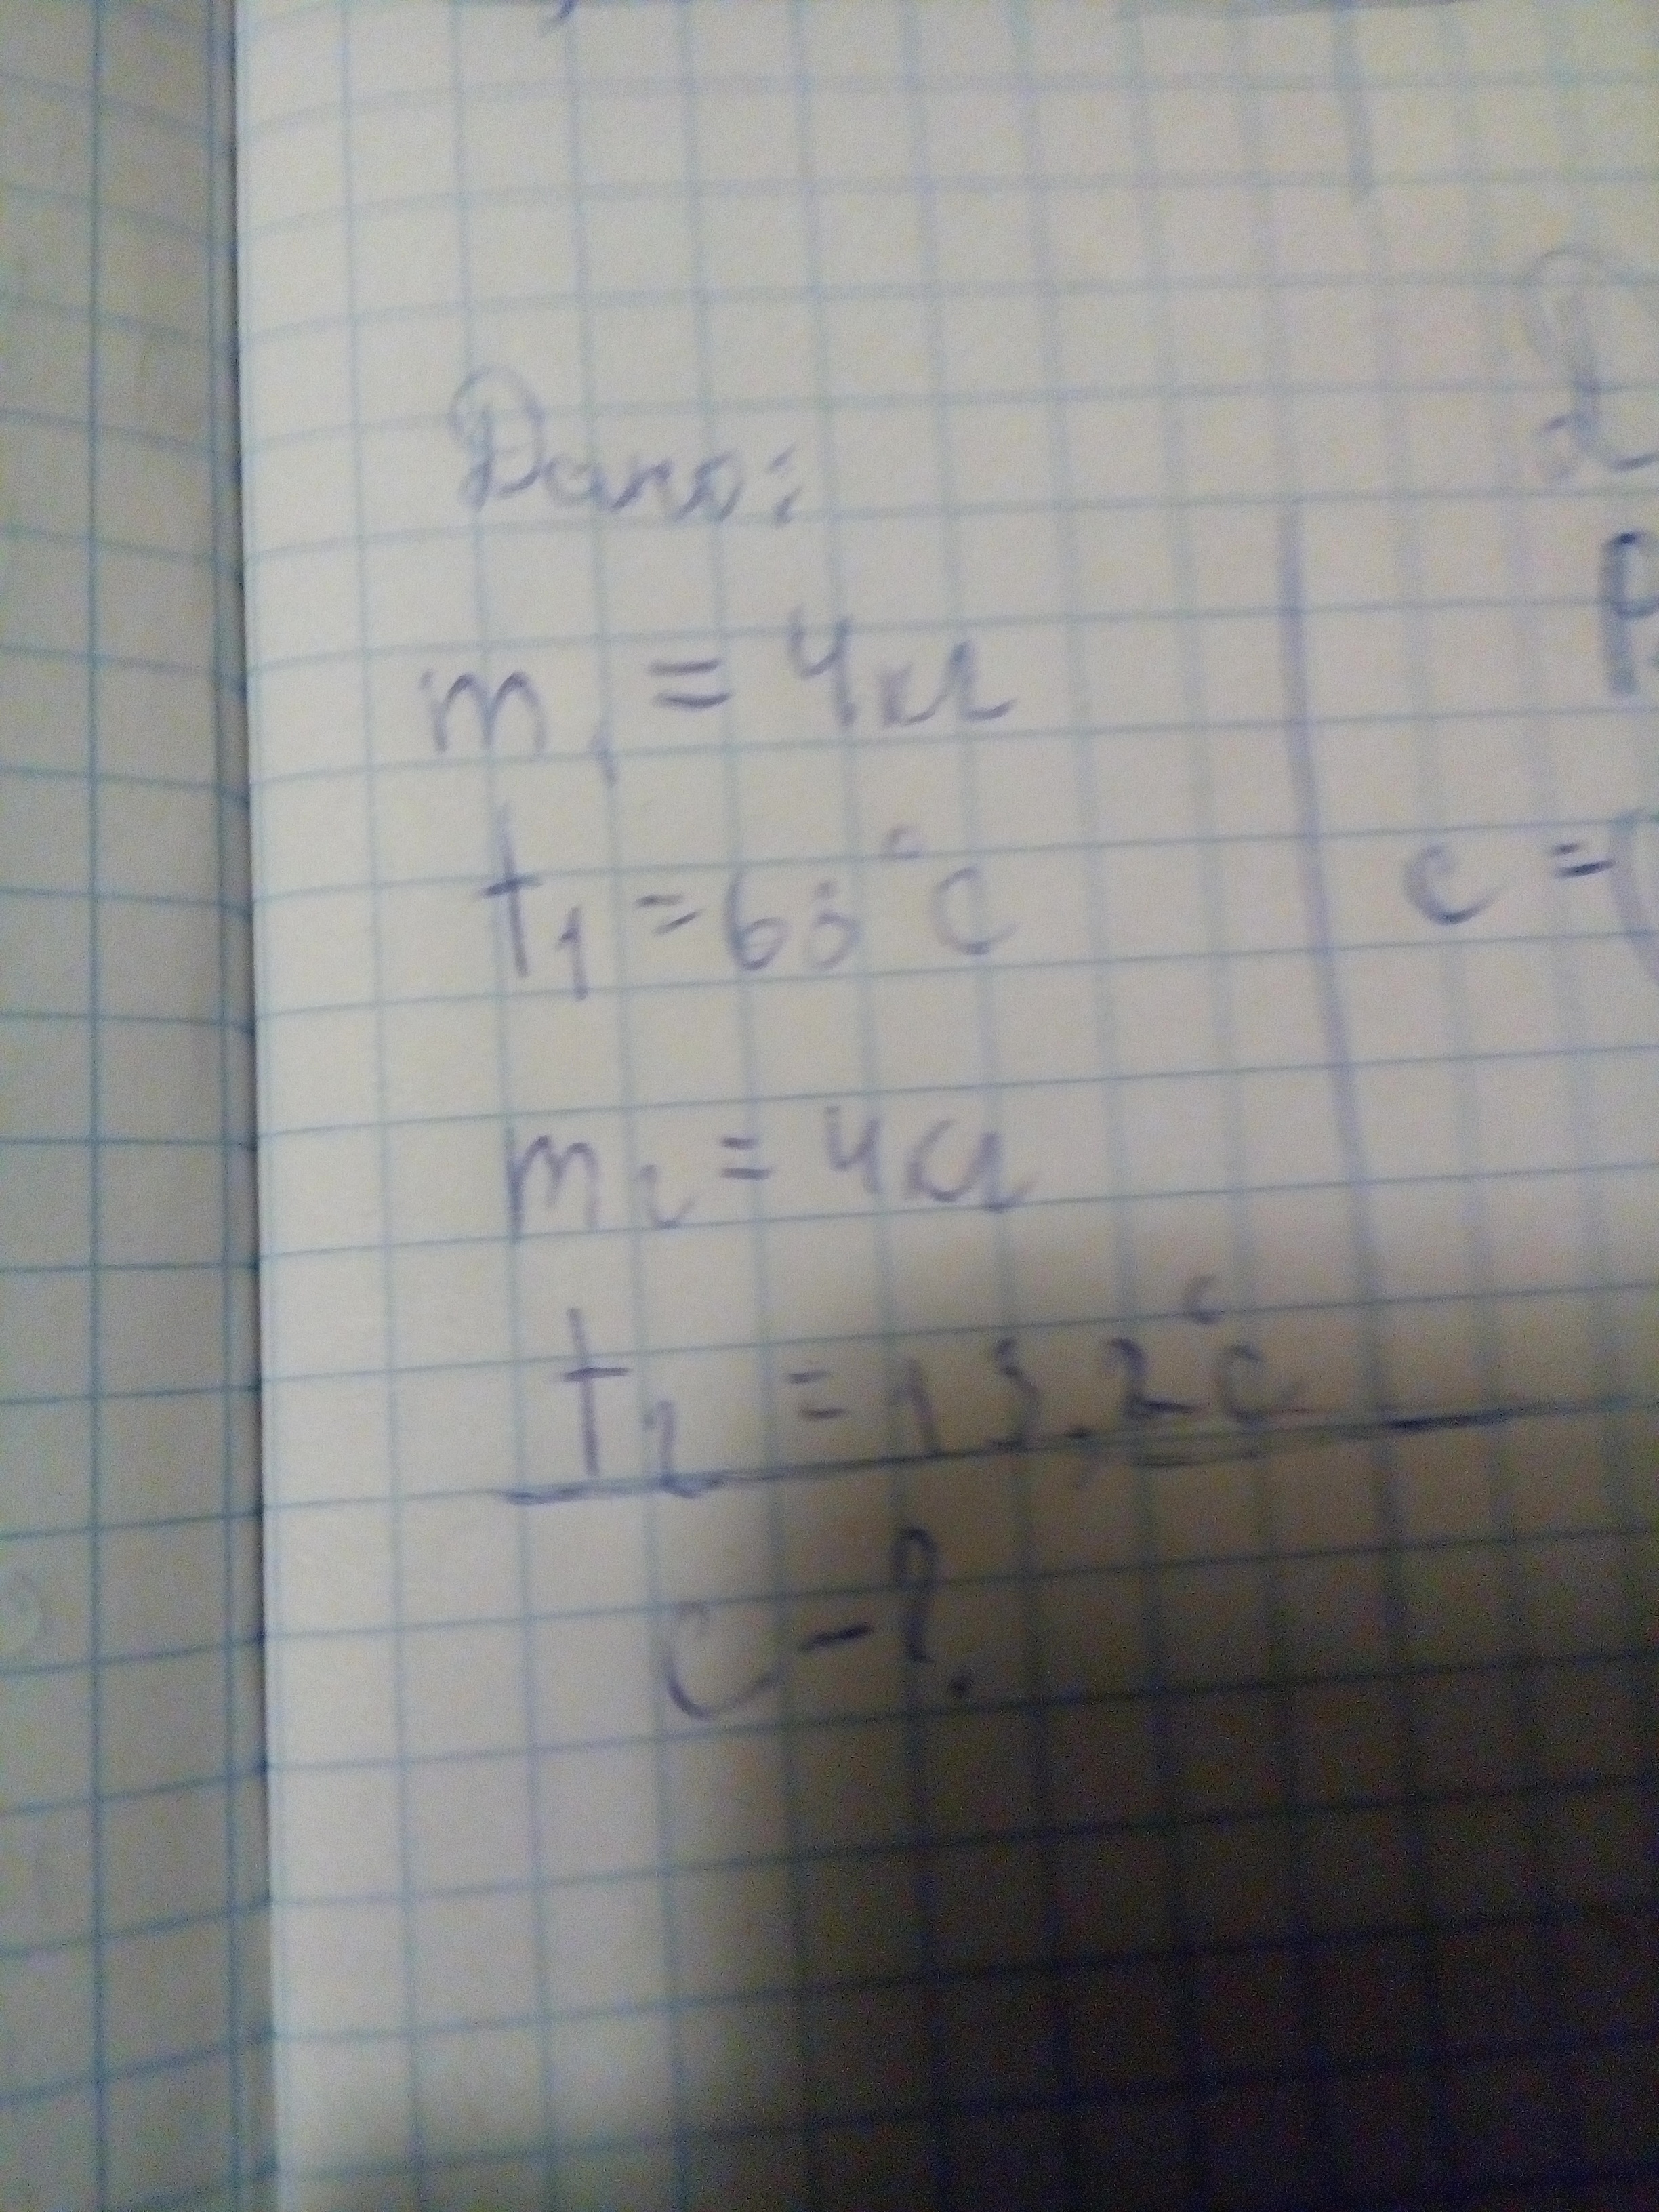 Дано:
m₁ = 4кг
t₁ = 63°C
c =
m₂ = 4кг
t₂ = 13,2°C
c - ?